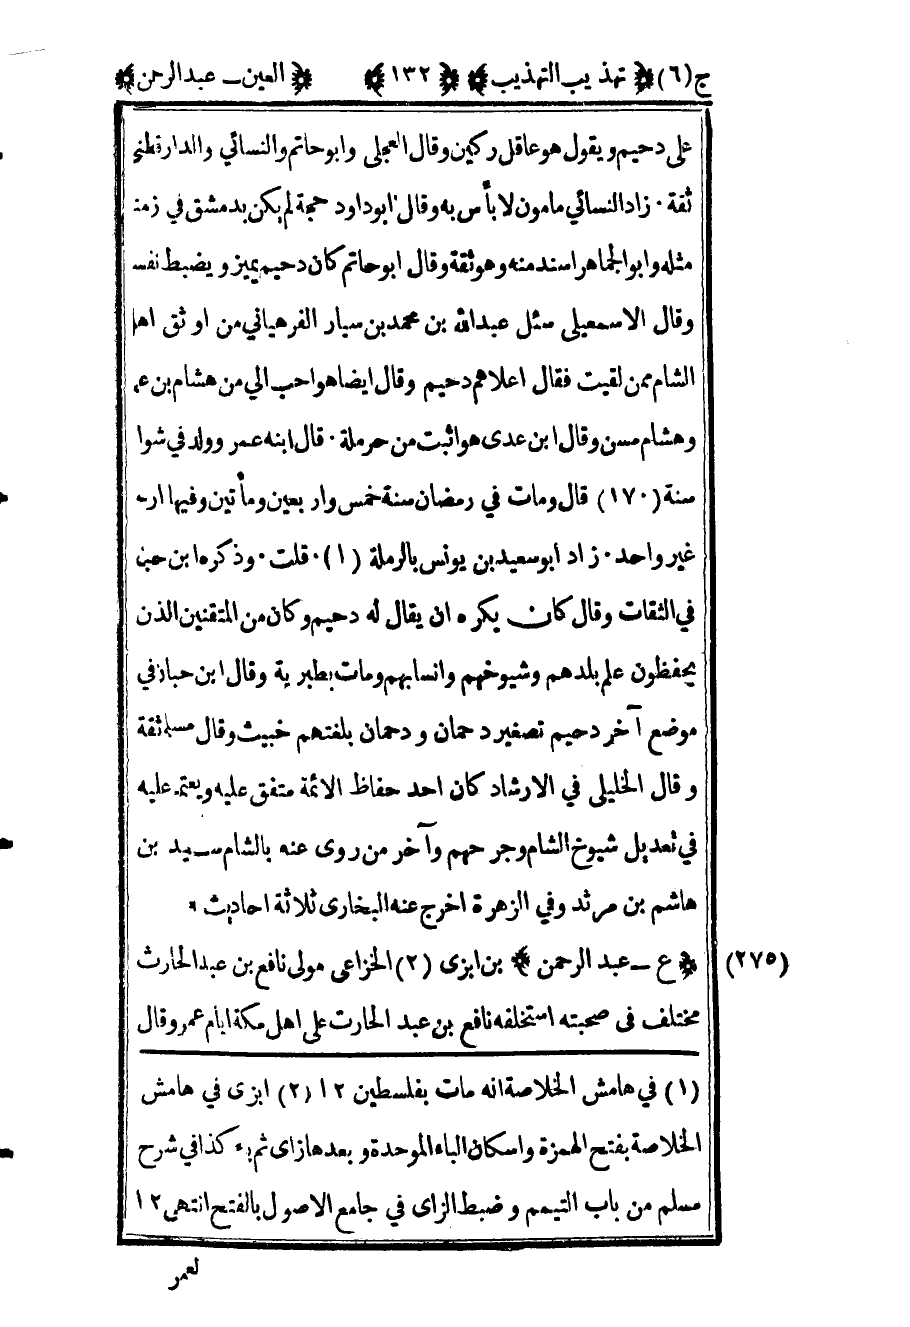 ج(٦) ﴿ تهذيب التهذيب ﴾ ﴿ ١٣٢ ﴾ ﴿ العين ــ عبدالرحمن ﴾
على دحيم ويقول هو عاقل ركين وقال العجلى وابوحاتم والنسائي والدارقطني
ثقة · زاد النسائي مامون لا بأس به وقال ابوداود حجة لم يكن بدمشق في زمنه
مثله وابوالجماهر اسند منه وهو ثقة وقال ابوحاتم كان دحيم يميز ويضبط نفسه
وقال الاسمعيلى سئل عبدالله بن محمد بن سيار الفرهياني من اوثق اهل
الشام ممن لقيت فقال اعلاهم دحيم وقال ايضا هو احب الي من هشام بن عـ
وهشام مسن وقال ابن عدى هو اثبت من حرملة · قال ابنه عمر وولد في شوا
سنة (١٧٠) قال ومات في رمضان سنة خمس واربعين ومأتين وفيها ارخـ
غير واحد · زاد ابوسعيد بن يونس بالرملة (١) · قلت · وذكره ابن حبـ
في الثقات وقال كان يكره ان يقال له دحيم وكان من المتقنين الذن
يحفظون علم بلدهم وشيوخهم وانسابهم ومات بطبرية وقال ابن حبان في
موضع آخر دحيم تصغير دحمان ودحمان بلغتهم خبيث وقال مسلمة ثقة
وقال الخليلى في الارشاد كان احد حفاظ الائمة متفق عليه ويعتمد عليه
في تعديل شيوخ الشام وجرحهم وآخر من روى عنه بالشام سعيد بن
هاشم بن مرثد وفي الزهرة اخرج عنه البخارى ثلاثة احاديث *
﴿ ع ــ عبد الرحمن ﴾ بن ابزى (٢) الخزاعى مولى نافع بن عبد الحارث (٢٧٥)
مختلف فى صحبته استخلفه نافع بن عبد الحارث على اهل مكة ايام عمر وقال
(١) في هامش الخلاصة انه مات بفلسطين ١٢ (٢) ابزى في هامش
الخلاصة بفتح الهمزة واسكان الباء الموحدة وبعدها زاى ثم ياء كذا في شرح
مسلم من باب التيمم وضبط الزاى في جامع الاصول بالفتح انتهى ١٢
لعمر